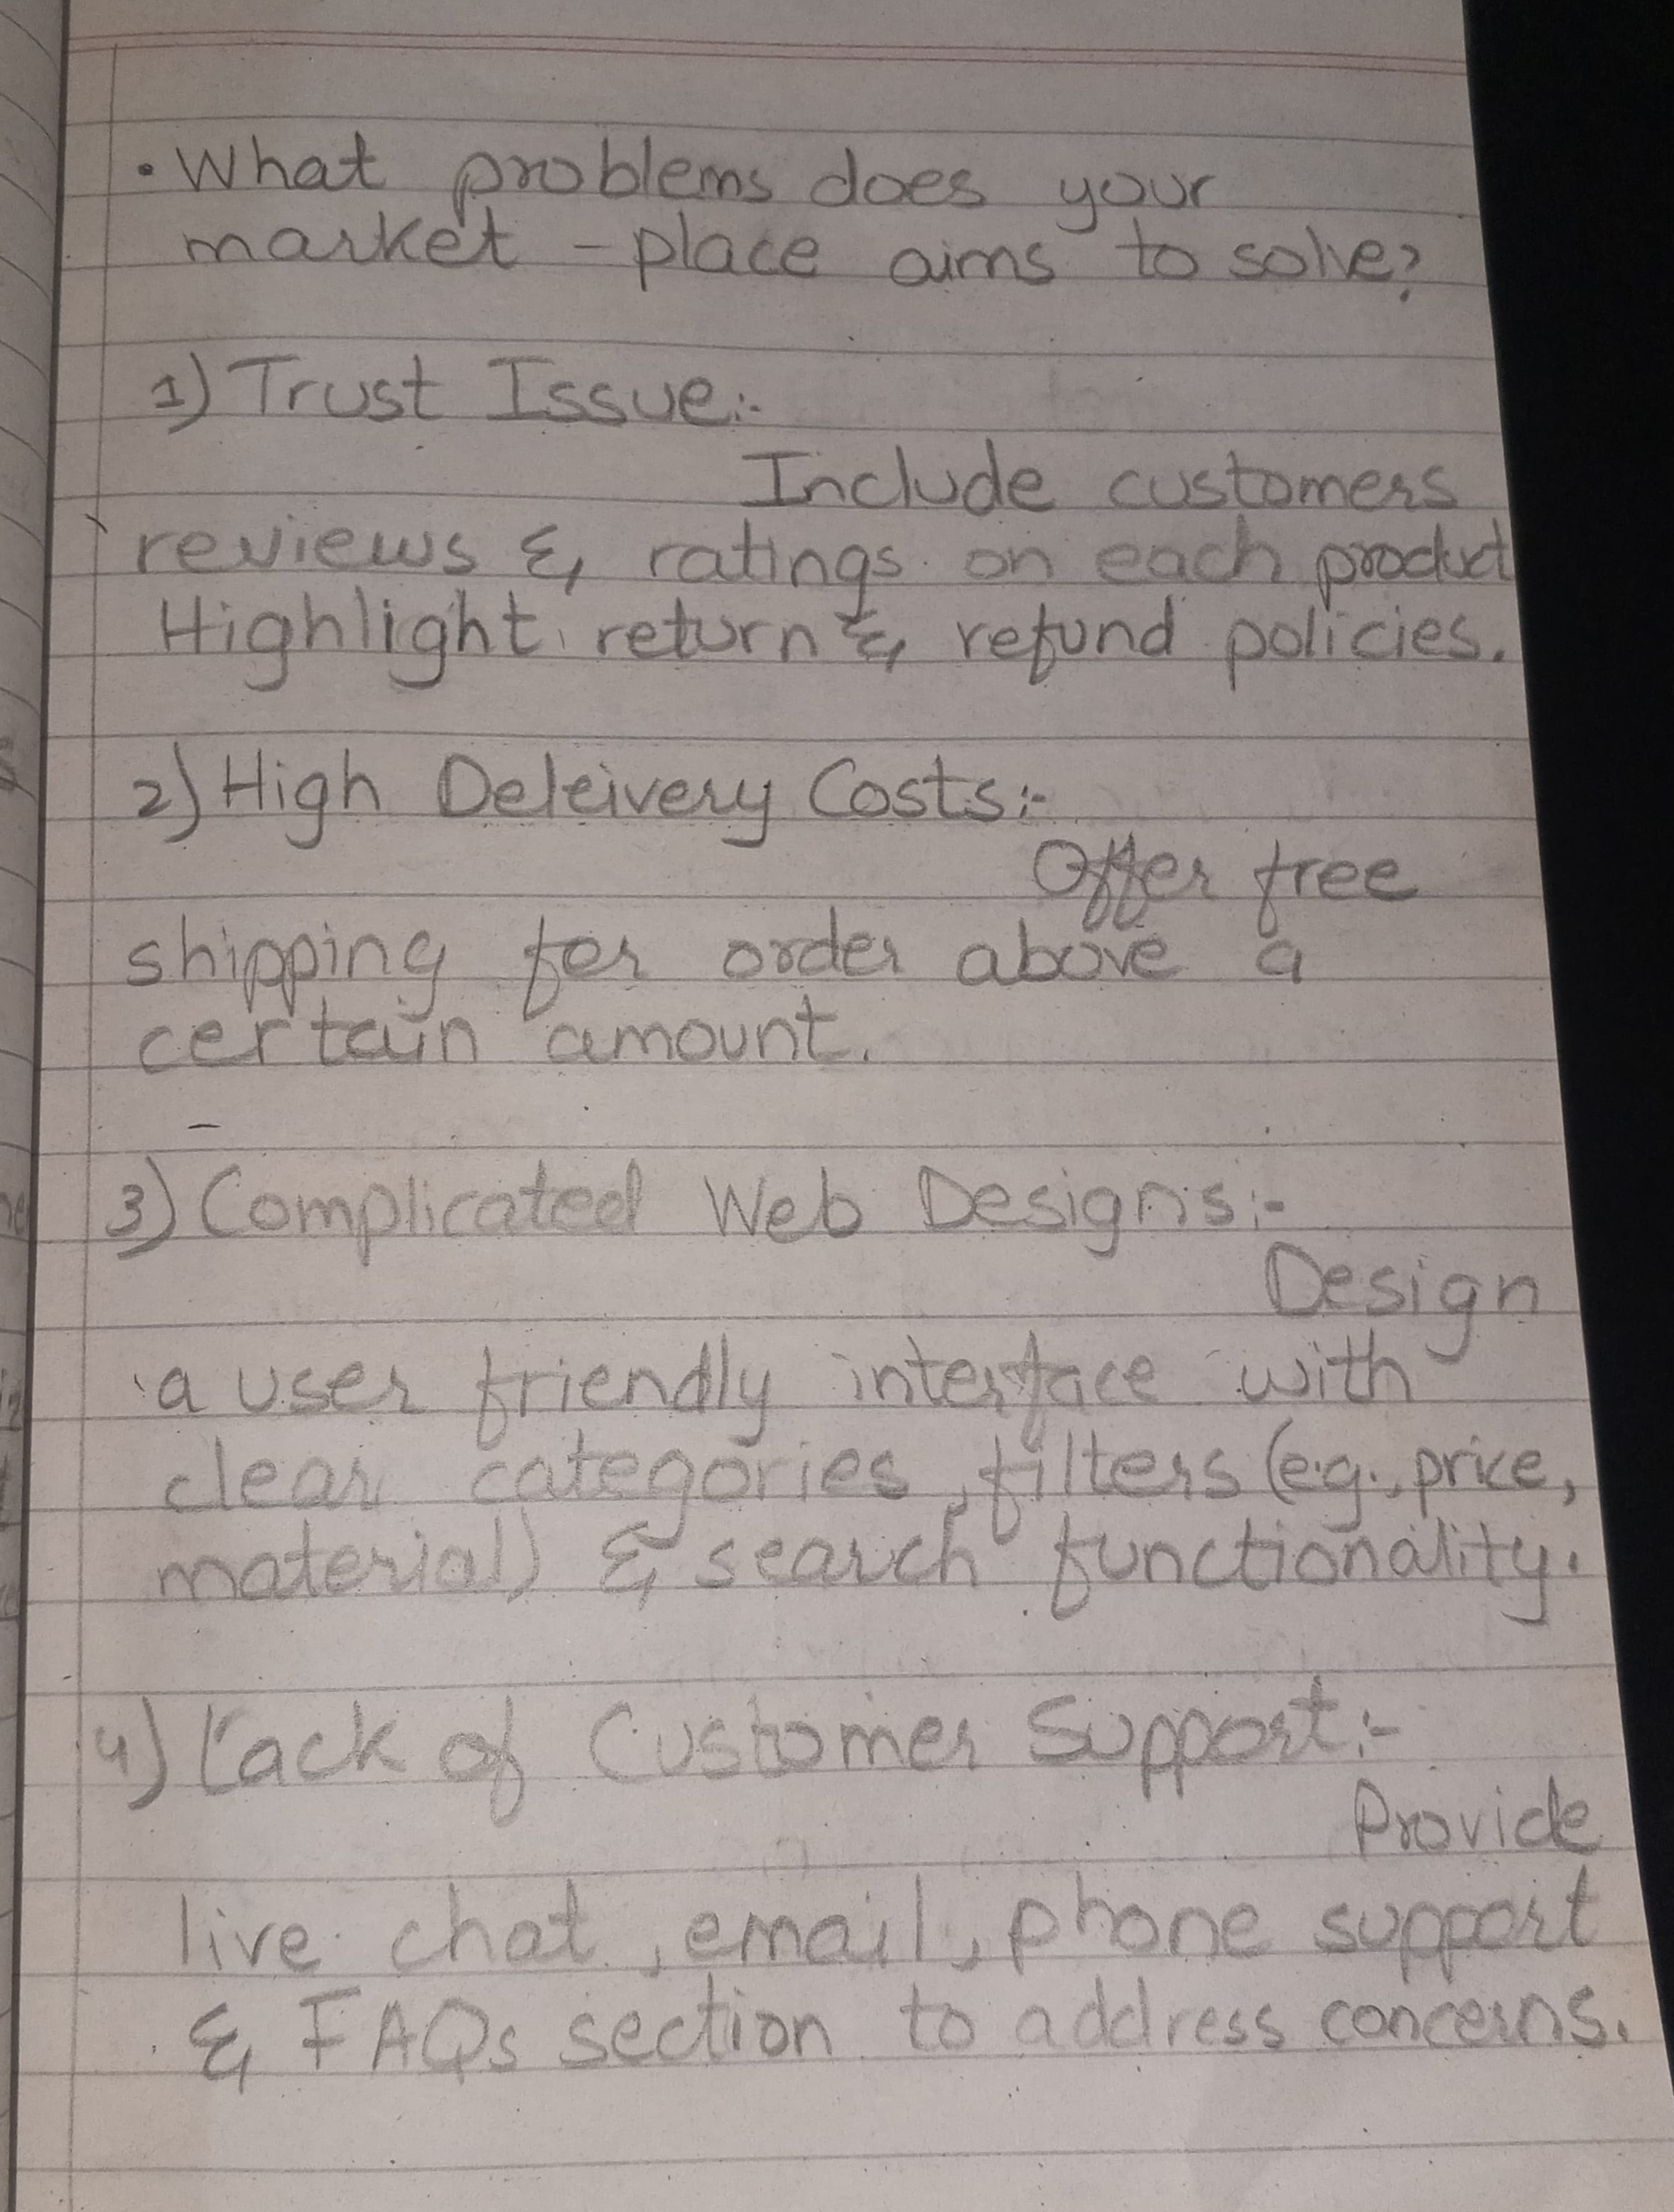 • What problems does your
market - place aims to solve?
1) Trust Issue:-
Include customers
reviews & ratings on each product
Highlight return & refund policies.
2) High Deleivery Costs:-
Offer free
shipping for order above a
certain amount.
3) Complicated Web Designs:-
Design
a user friendly interface with
clear categories, filters (e.g., price,
material) & search functionality.
4) Lack of Customer Support:-
Provide
live chat, email, phone support
& FAQs section to address concerns.